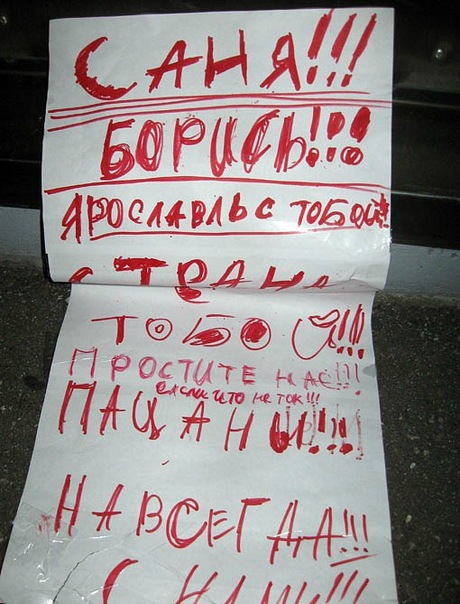 САНЯ!!!
БОРИСЬ!!!
ЯРОСЛАВЛЬ С ТОБОЙ!!
СТРАНА
ТОБОЙ!!!
ПРОСТИТЕ НАС!!!
если что не ток!!!
ПАЦАНЫ!!!
НАВСЕГДА!!!
С НАМИ!!!